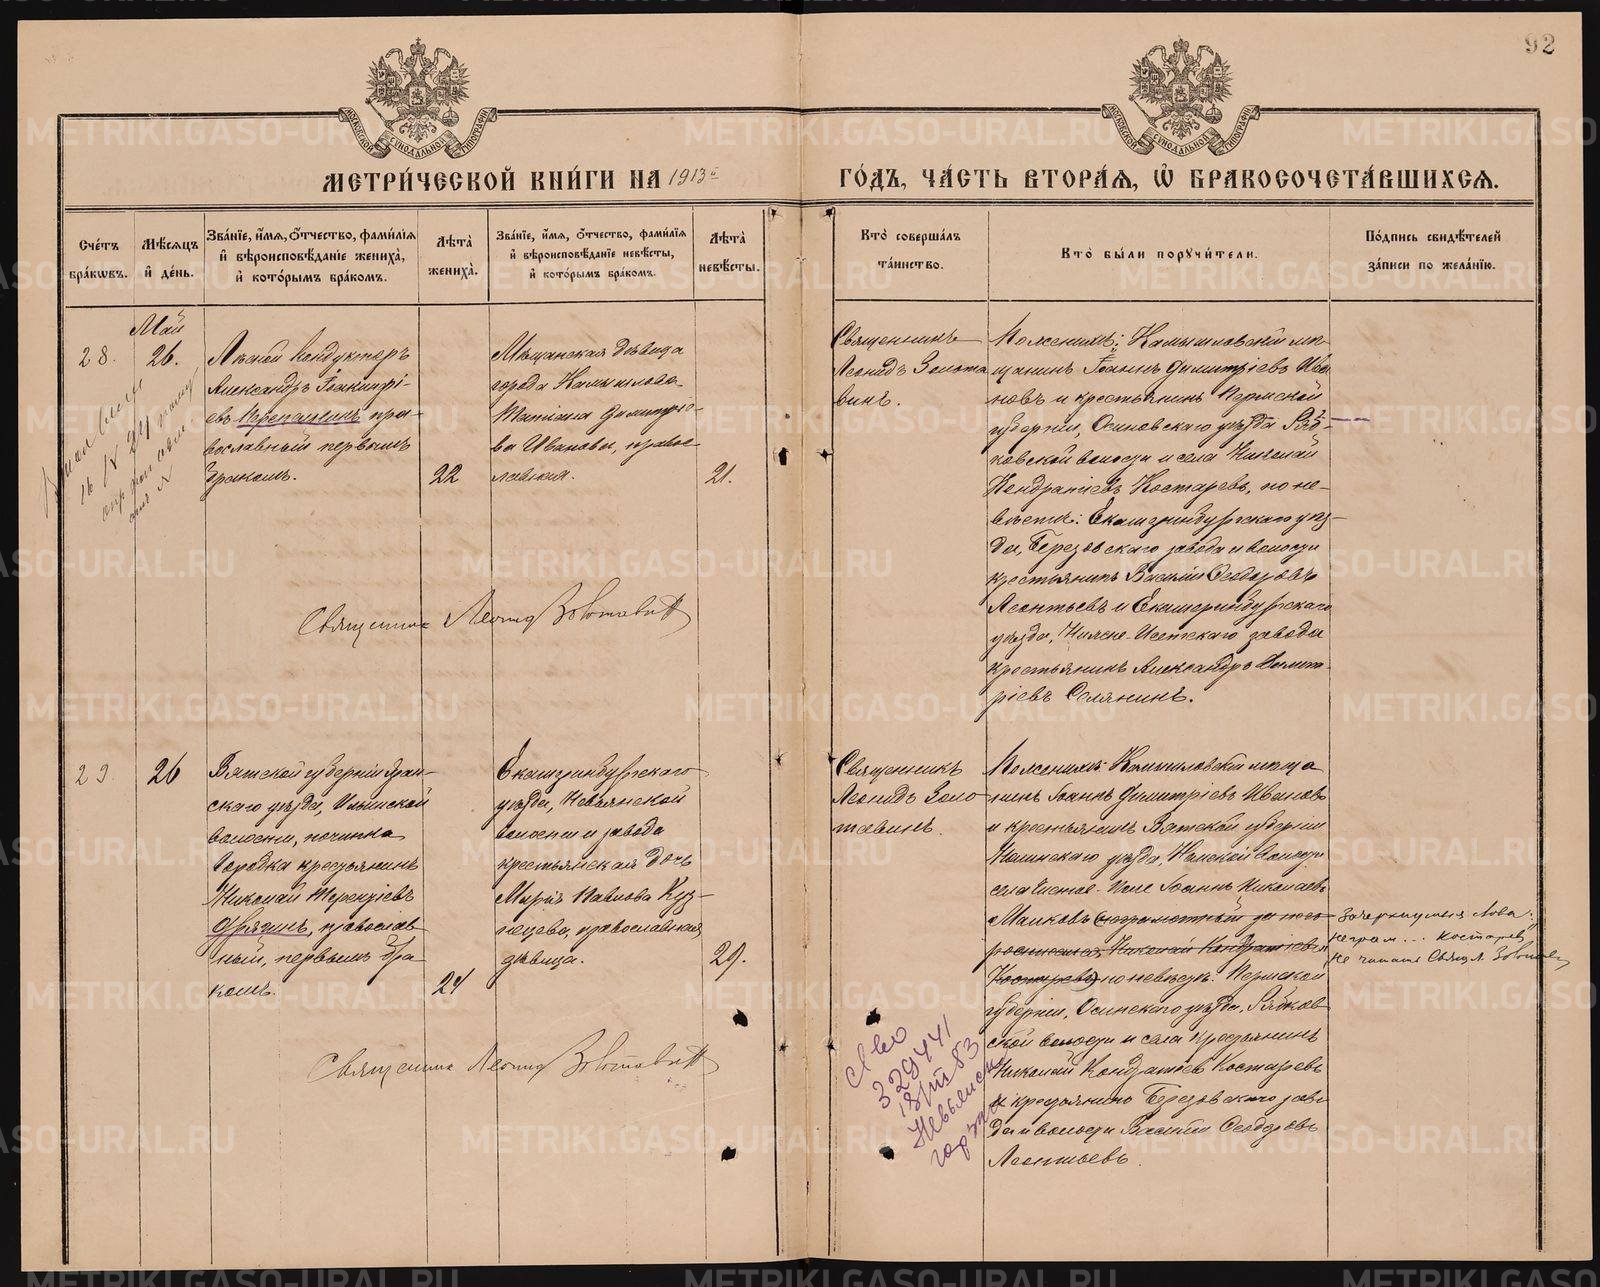 92
МЕТРИ́ЧЕСКОЙ КНИ́ГИ НА 1913й
ГО́ДЪ, ЧА́СТЬ ВТОРА́Я, Ѡ БРАКОСОЧЕТА́ВШИХСЯ.
Сче́тъ бра́кωвъ.
Мѣ́сяцъ и҆ де́нь.
Зва́нїе, и҆́мя, ѻ҆́тчество, фами́лїя и҆ вѣроисповѣ́данїе жениха̀, и҆ кото́рымъ бра́комъ.
Лѣта̀ жениха̀.
Зва́нїе, и҆́мя, ѻ҆́тчество, фами́лїя и҆ вѣроисповѣ́данїе невѣ́сты, и҆ кото́рымъ бра́комъ.
Лѣта̀ невѣ́сты.
Кто̀ соверша́лъ та́инство.
Кто̀ бы́ли порꙋчи́тели.
По́дпись свидѣ́телей за́писи по жела́нїю.
Май
28.
26.
Лѣсной Кондукторъ
Александръ Іоакимфі-
евъ
пра-
вославный первымъ
бракомъ.
22
Мѣщанская дѣвица
города Камышлова
Татіана Димитріе-
ва Иванова, право-
славная.
21.
Священникъ
Леонидъ Золота
винъ.
По женихѣ: Камышловскій мѣ-
щанинъ Іоаннъ Димитріевъ Ива
новъ и крестьянинъ Пермской
губерніи, Осиновскаго уѣзда Ряб-
ковской волости и села Николай
Кондратіевъ Костаревъ, по не-
вѣстѣ: Екатеринбургскаго уѣз-
да, Березовскаго завода и волости
крестьянинъ Василій Ѳеодоровъ
Леонтьевъ и Екатеринбургскаго
уѣзда, Нижне-Исетскаго завода
крестьянинъ Александръ Димит-
ріевъ Селянинъ.
Священникъ Леонид Золотавин
29.
26
Вятской губерніи Яран-
скаго уѣзда, Ильинской
волости, починка
Городка крестьянинъ
Николай Терентіевъ
православ
ный, первымъ бра
комъ.
24
Екатеринбургскаго
уѣзда, Невьянской
волости и завода
крестьянская дочь
Марія Павлова Куз-
нецова, православная
дѣвица.
29.
Священникъ
Леонидъ Золо
тавинъ.
По женихѣ: Камышловскій мѣща
нинъ Іоаннъ Димитріевъ Ивановъ
и крестьянинъ Вятской губерніи
уѣзда, волости
села Чистое-Поле Іоаннъ Николаевъ
Малковъ (неграмотный
росписался Николай Кондратіевъ
Костаревъ) по невѣстѣ: Пермской
губерніи, Осинскаго уѣзда, Рябков-
ской волости и села крестьянинъ
Николай Кондратіевъ Костаревъ
и крестьянинъ Березовскаго заво
да и волости Василій Ѳеодоровъ
Леонтьевъ.
Зачеркнутыя слова:
„неграм... Костаревъ"
не читать Свящ. Л. Золотавин
Священникъ Леонид Золотавин
329441
83
Невьянск
горзагс
МОСКОВСКОЙ СѴНОДАЛЬНОЙ ТИПОГРАФІИ
МОСКОВСКОЙ СѴНОДАЛЬНОЙ ТИПОГРАФІИ
METRIKI.GASO-URAL.RU